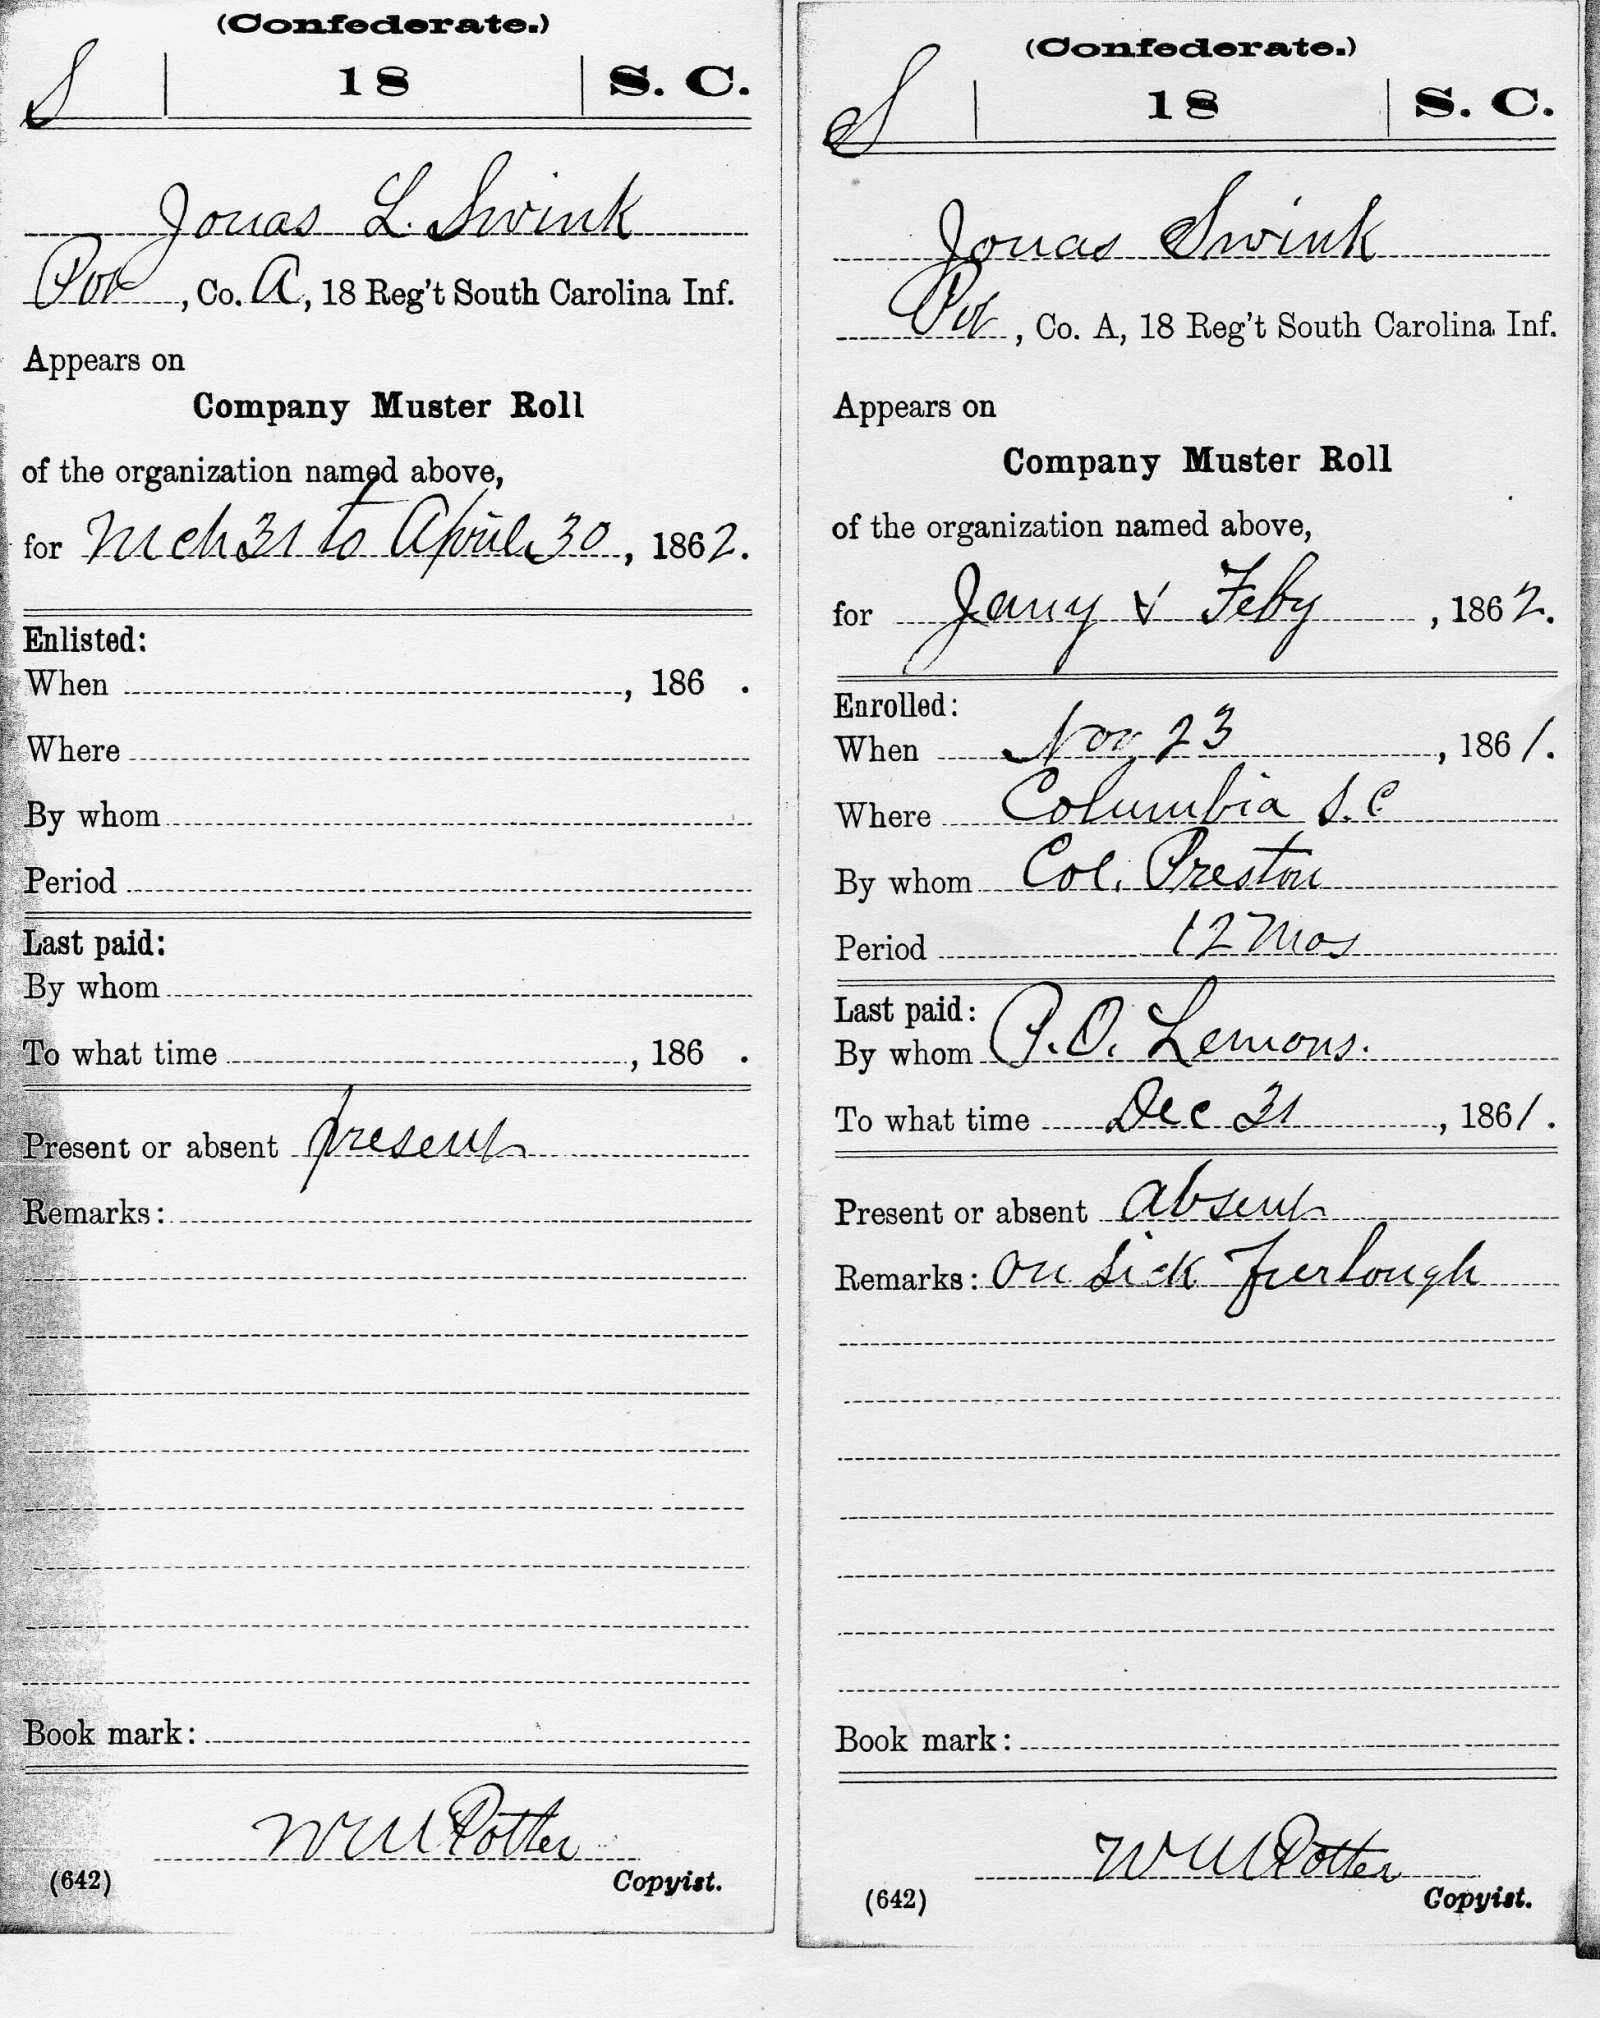 (Confederate.)
S | 18 | S. C.
Jonas L. Swink
Pvt, Co. A, 18 Reg't South Carolina Inf.
Appears on
Company Muster Roll
of the organization named above,
for Mch 31 to April 30, 1862.
Enlisted:
When , 186 .
Where
By whom
Period
Last paid:
By whom
To what time , 186 .
Present or absent present
Remarks:
Book mark:
W M Potter
(642) Copyist.
(Confederate.)
S | 18 | S. C.
Jonas Swink
Pvt, Co. A, 18 Reg't South Carolina Inf.
Appears on
Company Muster Roll
of the organization named above,
for Jany & Feby , 1862.
Enrolled:
When Nov 23 , 1861.
Where Columbia S.C
By whom Col. Preston
Period 12 Mos
Last paid:
By whom P.O. Lemons.
To what time Dec 31 , 1861.
Present or absent absent
Remarks: on sick furlough
Book mark:
W M Potter
(642) Copyist.